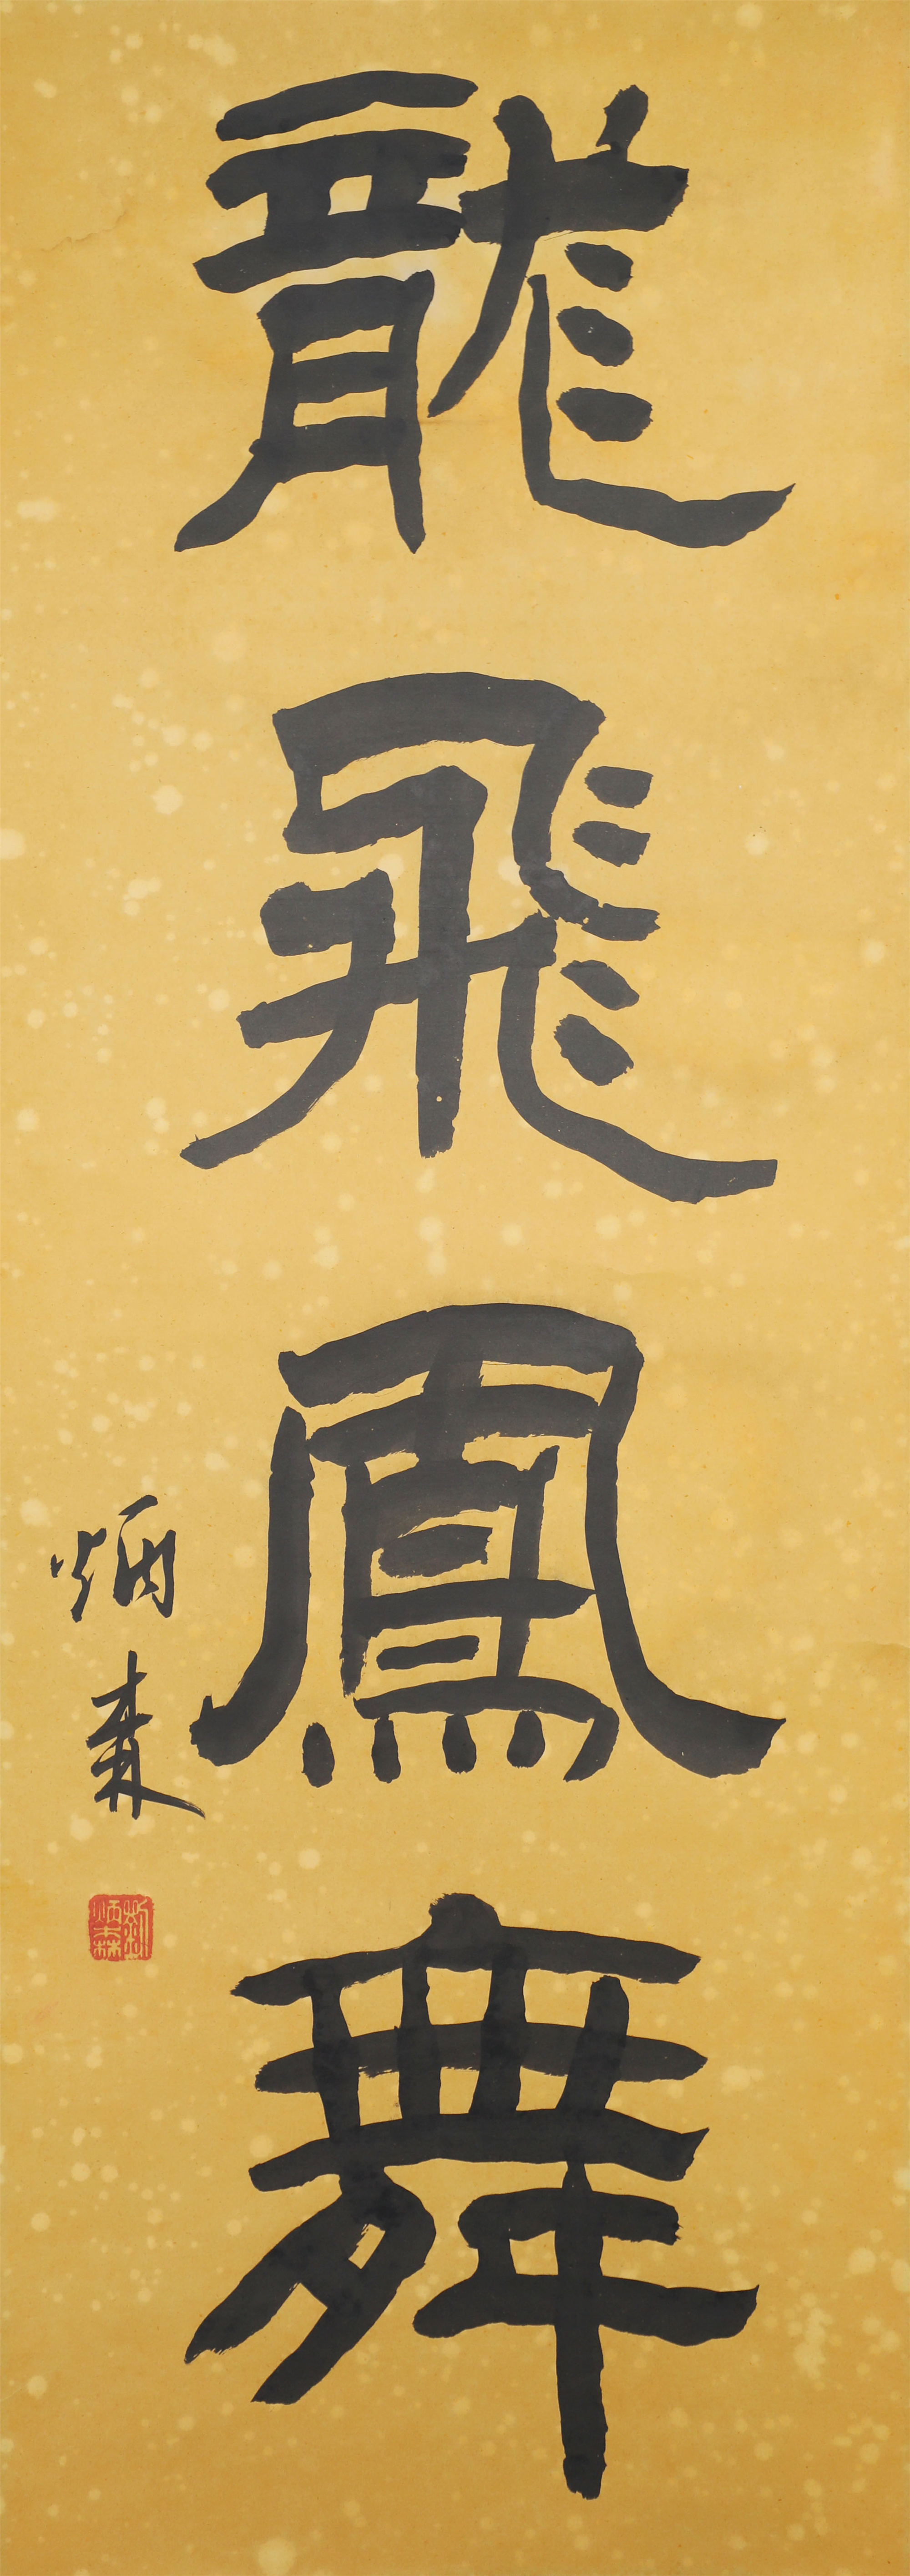 龍飛鳳舞
炳森
劉炳森